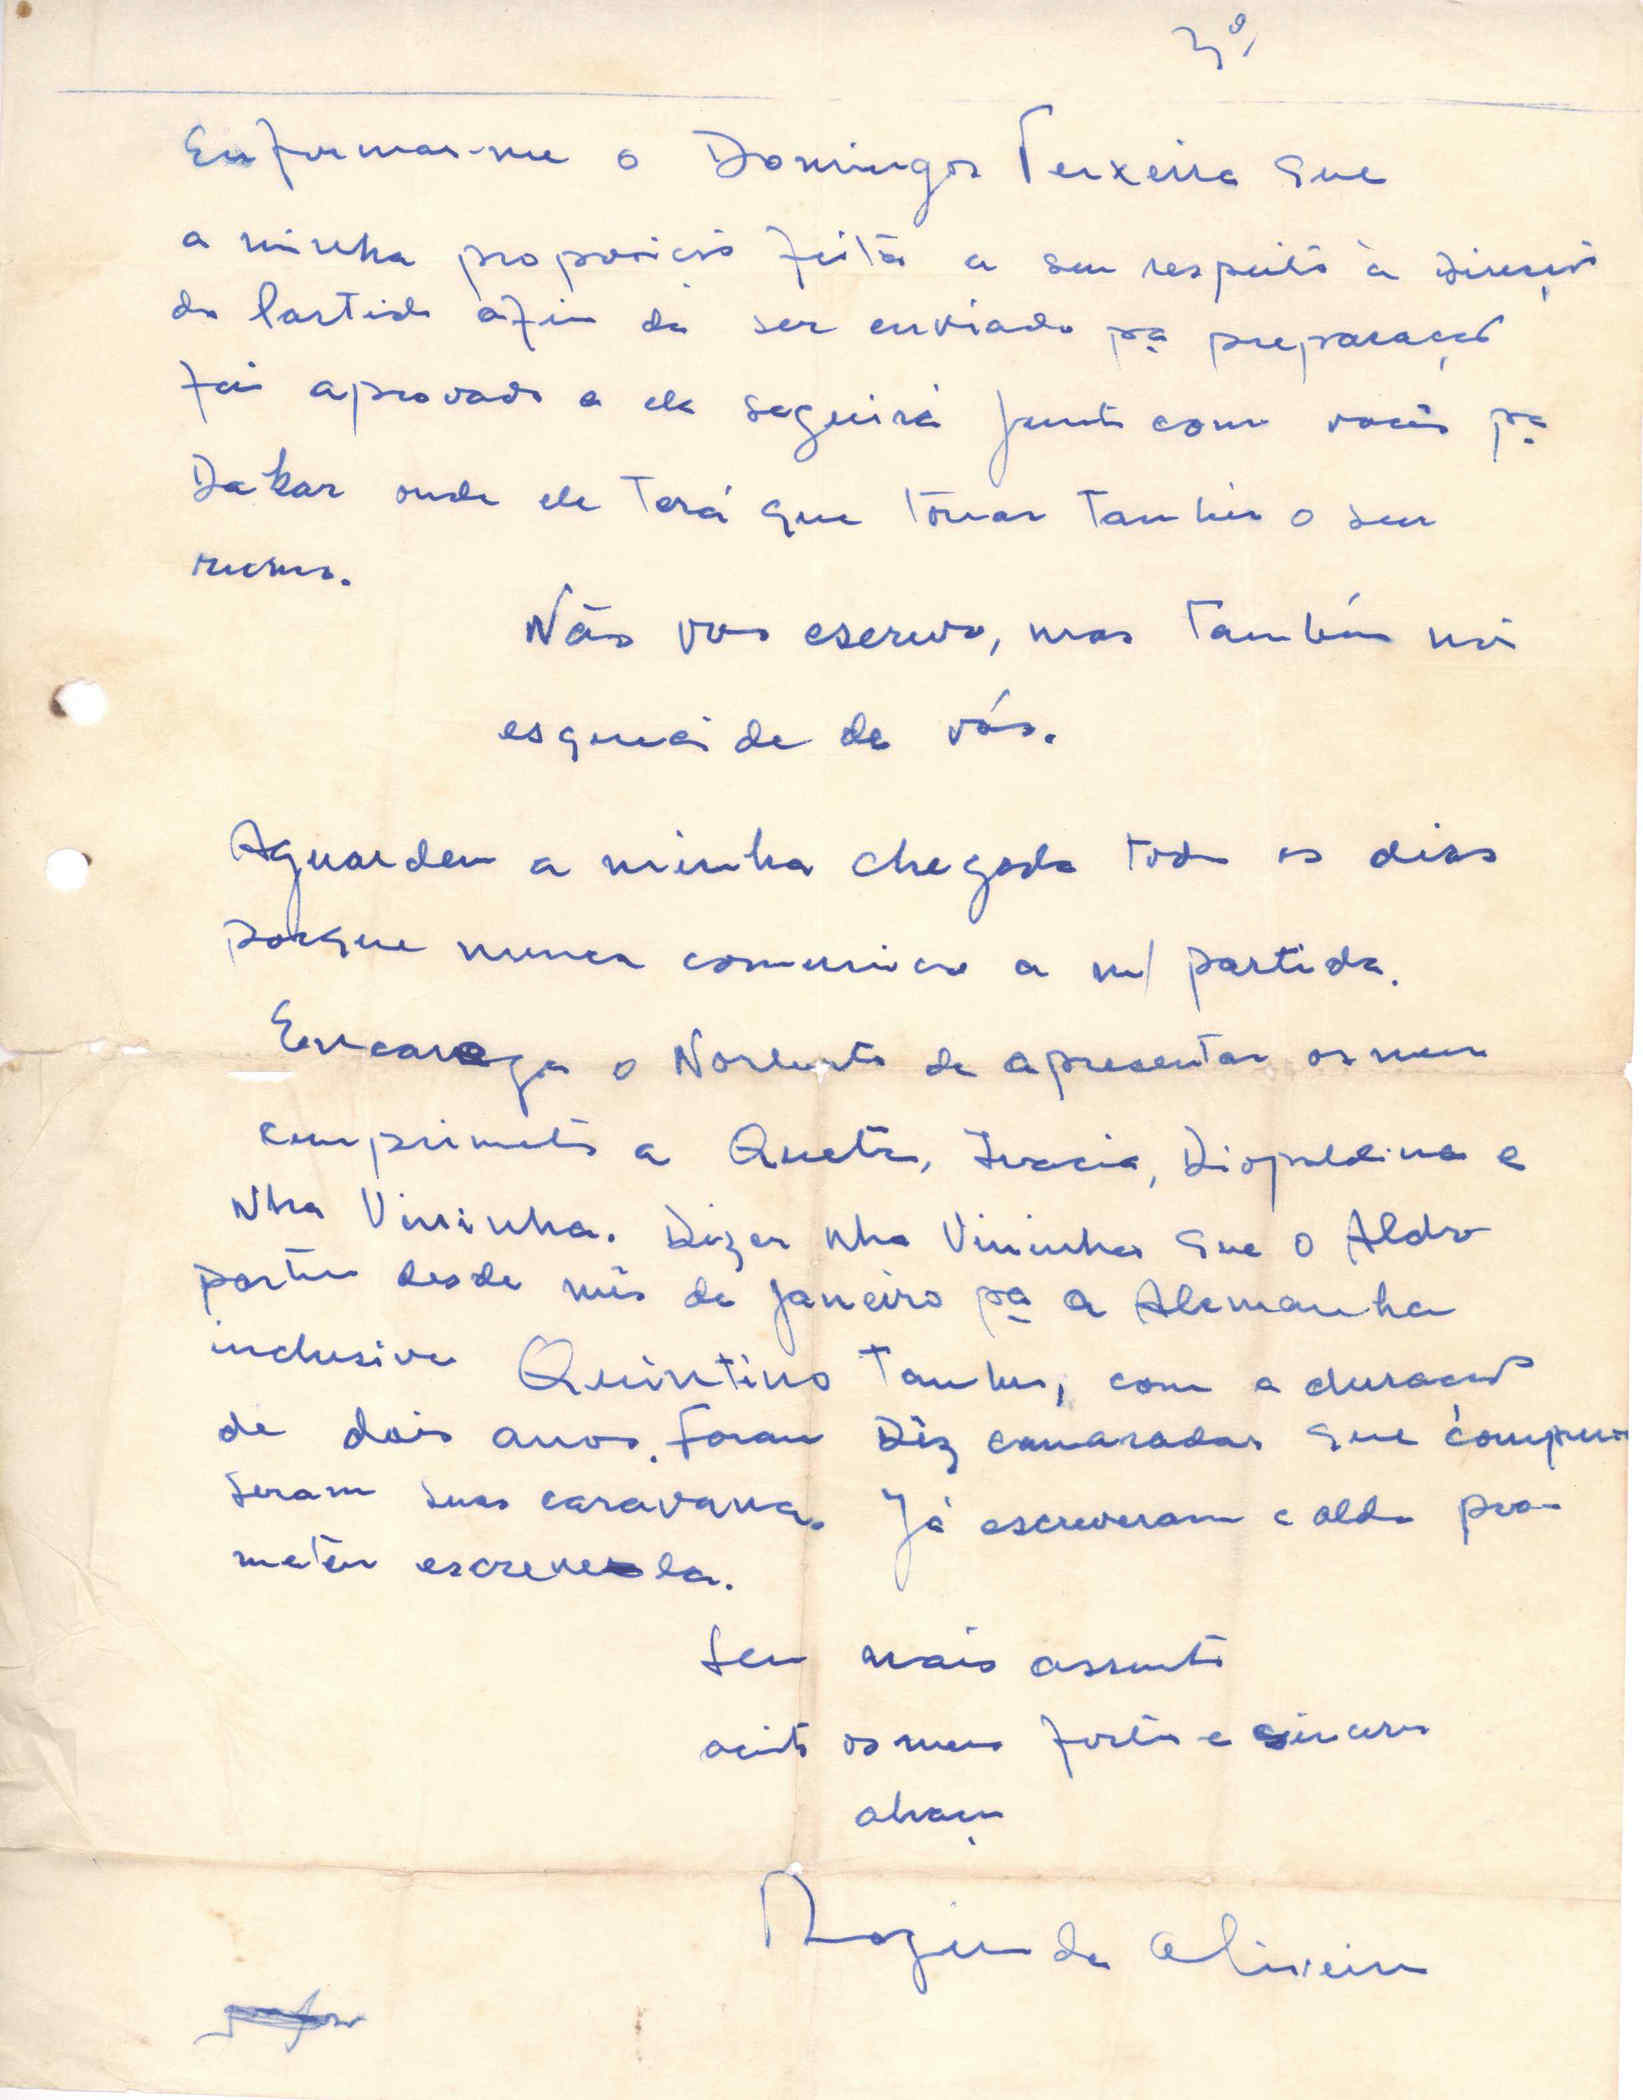 3º
Enformar-me o Domingos Teixeira que
a minha proposição feita a seu respeito à Direcção
do Partido afim de ser enviado pª preparação
foi aprovado e ele seguirá junto com vocês pª
Dakar onde ele terá que tomar também o seu
rumo.
Não vos escrevo, mas também não
esqueci de de vós.
Aguardem a minha chegada todos os dias
porque nunca comunico a m/ partida.
Encarega o Norberto de apresentar os meus
cumprimetos a Queta, Inacia, Diopoldina e
Nha Vininha. Dizer Nha Vininha que o Aldo
partiu desde mês de Janeiro pª a Alemanha
inclusive Quintino tambem, com a duração
de dois anos. Foram Dez camaradas que compu-
seram suas caravana. Já escreveram e aldo pro-
meteu escrevela.
Sem mais assunto
aceite os meus fortes e sinceros
abraços
de Oliveira